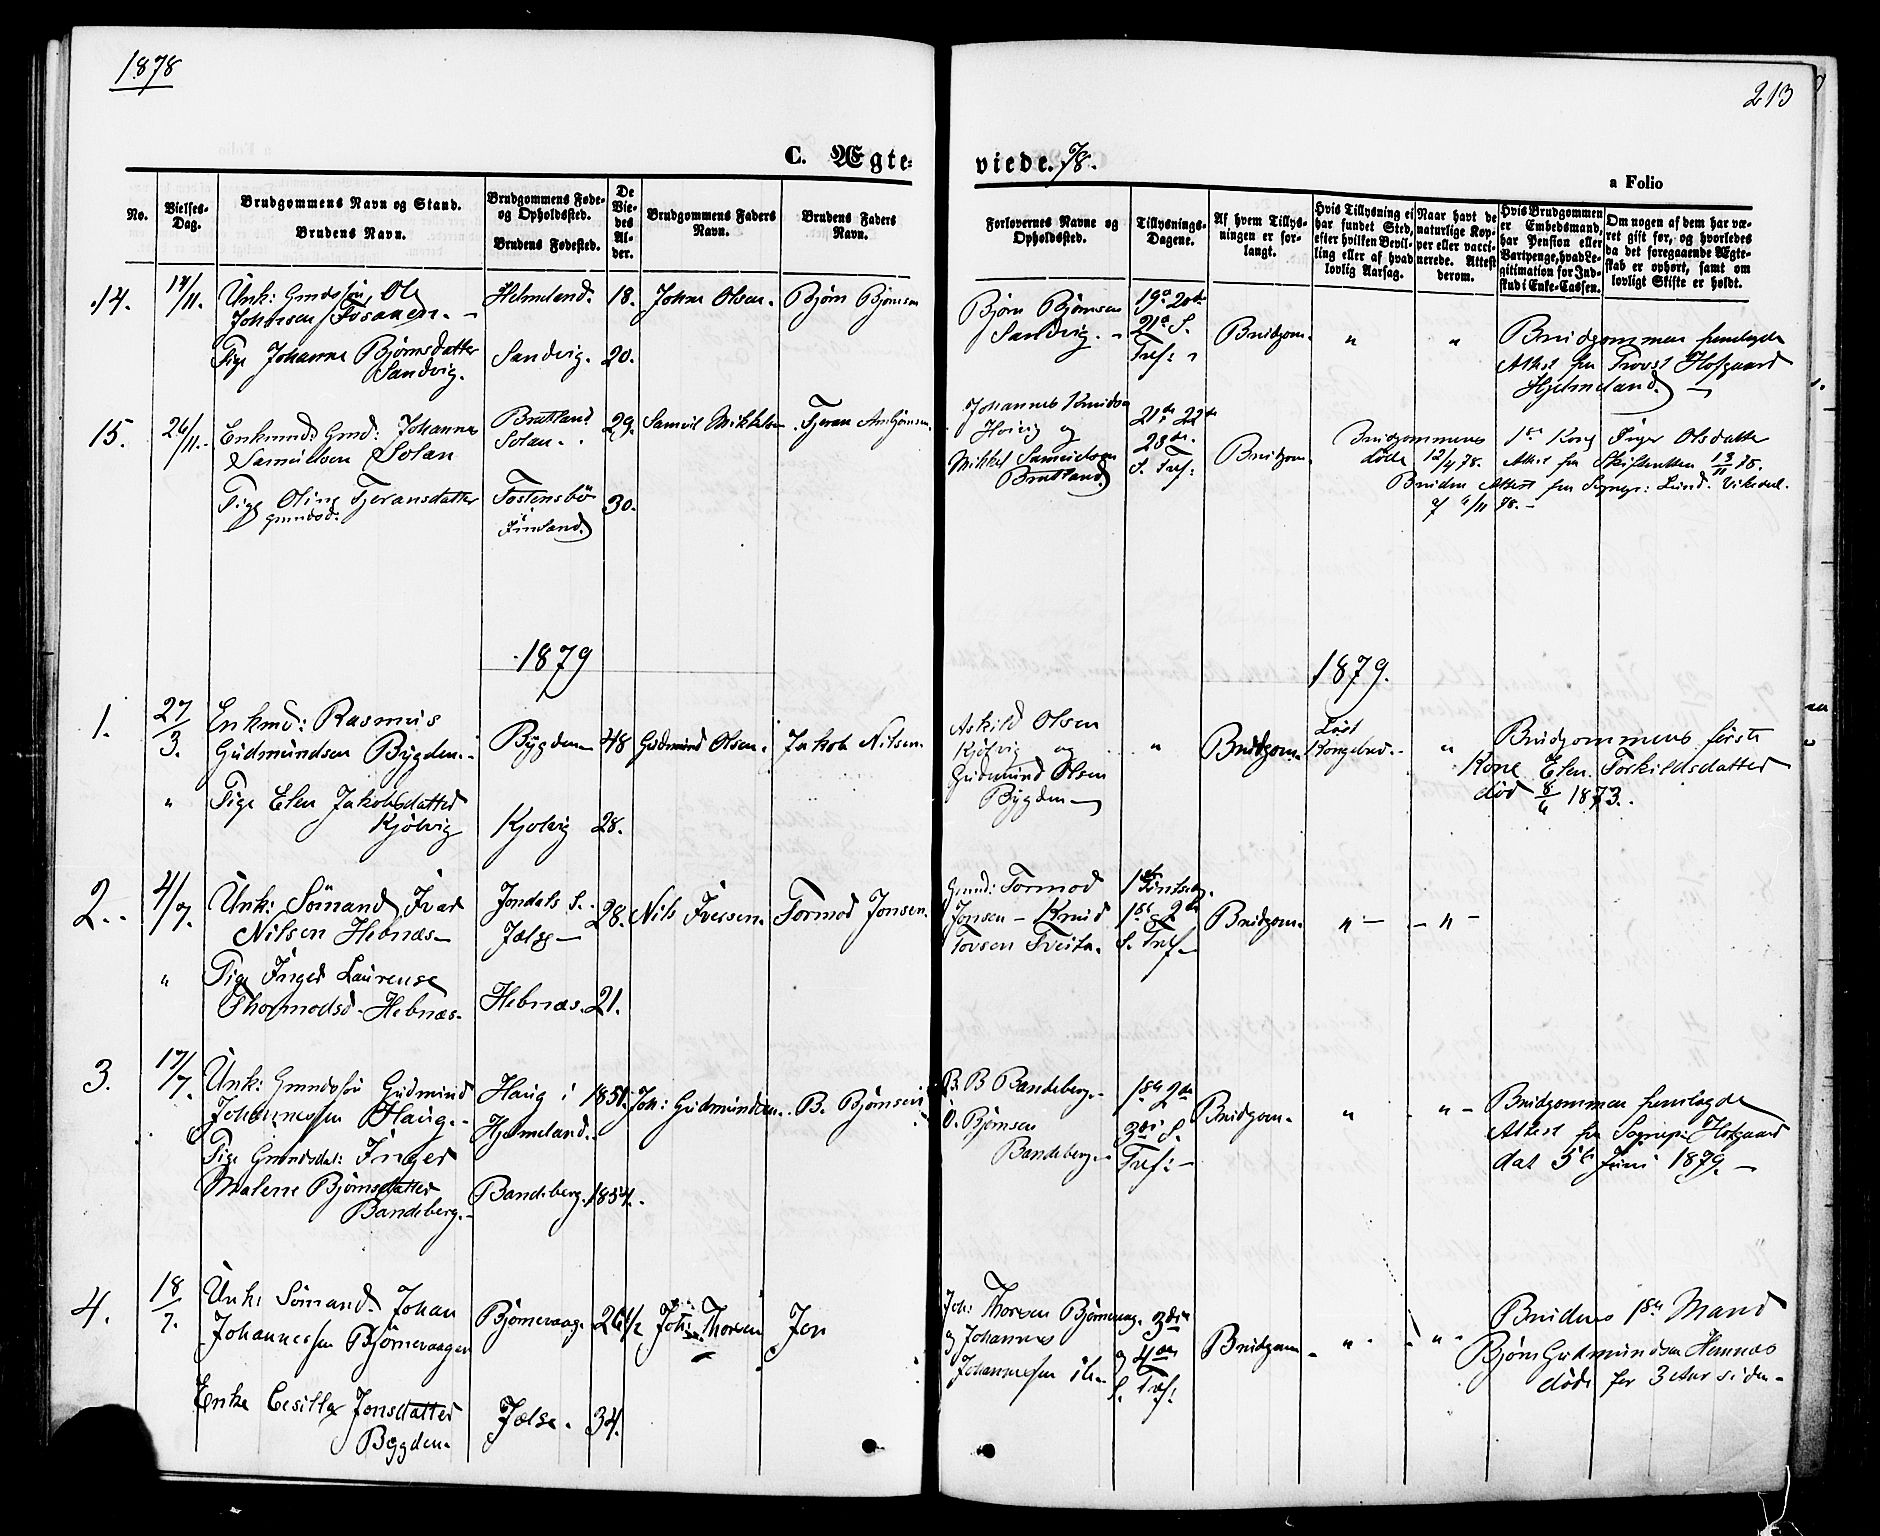 1878
213
C. Ægte-
viede. 78.
a Folio
No.
Vielses-
Dag.
Brudgommens Navn og Stand.
Brudens Navn.
Brudgommens Føde-
og Opholdssted.
Brudens Fødested.
De
Vie-
des
Al-
der.
Brudgommens Faders
Navn.
Brudens Faders
Navn.
Forlovernes Navne og
Opholdssted.
Tillysnings-
Dagene.
Af hvem Tillys-
ningen er for-
langt.
Hvis Tillysning ei
har fundet Sted,
efter hvilken Bevil-
ling eller af hvad
lovlig Aarsag.
Naar havt de
naturlige Kop-
per eller vacci-
nerede. Attest
derom.
Hvis Brudgommen
er Embedsmand,
har Pension eller
Vartpenge, hvad Le-
gitimation for Ind-
skud i Enke-Cassen.
Om nogen af dem har væ-
ret gift før, og hvorledes
da det foregaaende Ægte-
skab er ophørt, samt om
lovligt Skifte er holdt.
14. 17/11. Unk: Grudssøn, Ole
Johnsen Fosanen. -
Helmeland. 18. John Olsen. Bjørn Bjørnsen
Pige Johanne Bjørnsdatter
Sandvig.
Sandvig. 20.
Bjørn Bjørnsen
Sandvig. -
19de 20de
21de S.
Tref: "
Brudgom. " "
Brudgommen fremlagde
Attest fra Provst Hofgaard
Hjelmeland. -
15. 26/11. Enkemd: Grd: Johannes
Samuelsen Solan
Bratland
Solan. 29. Samuel Mikkelsen. Tjeran Ambjørnsen.
Pige Oline Tjeransdatter
Grundsd.
Tostensbø
i
Imsland. 30.
Johannes Knudsen
Hovig og
Mikkel Samuelsen
Bratland
21de 22de
23de.
S. Tref:
Brudgom.
Brudgommens 1ste Kone Inger Olsdatter
døde 12/4 78. Attest fra Skifteretten 13/11 78.
Bruden Attest fra Sognepr: Lund. Vikedal.
af 4/11 78. -
1879
1879.
1. 27/3. Enkmd: Rasmus
Gudmundsen Bygden. -
Bygden 48 Gudmund Olsen. Jakob Nilsen.
" Pige Elen Jakobsdatter
Kjølvig
Kjolvig 28.
Askild Olsen
Kjölvig og
Gudmund Olsen
Bygden
" Brudgom.
Løst
Kongebrev. - "
Brudgommens første
Kone Elen Torkildsdatter
død 8/6 1873.
2. 4/7. Unk: Sömand Ivar
Nilsen Hebnæs -
Jondals S.
Jælse - 28. Nils Iversen. Tormod Jonsen.
" Pige Inger Laurense
Thormodsd. Hebnæs.
Hebnæs. 21.
Grund: Tormod
Jonsen - Knud
Tovsen Tveita.
1ste Pintsedag.
1ste 2de
S. Tref -
Brudgom. " - - " -
3. 17/7. Unk: Grundssøn Gudmund
Johannessen Haug. -
Haug i
Hjelmeland. 1851. Joh: Gudmundsen. B. Bjørnsen
Pige Grundsdat: Inger
Malene Bjørnsdatter
Bandeberg. -
Bandeberg. 1854.
B. B Bandeberg. -
O. Bjørnsen
Bandeberg. -
1ste 2de
3die S.
Tref: -
Brudgom. " - " -
Brudgommen fremlagde
Attest fra Sognepr. Hofgaard
dat 5te Juni 1879. -
4. 18/7. Unk: Sømand. Johan
Johannessen Bjørnevaagen
Bjørnevaag. 26 1/2 Joh: Thorsen Jon
Enke Cesilla Jonsdatter
Bygden.
Jælse. 34.
Joh: Thorsen Bjørnevaag.
og Johannes
Johannessen ibm
3die
og 4de
S. Tref:
Brudgom - " - - " -
Brudens 1ste Mand
Bjørn Gudmundsen Hemnæs
døde for 3 Aar siden -